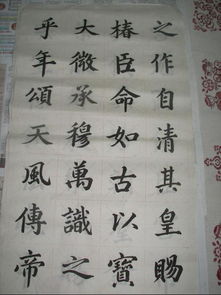 乎大椿之
年微臣作
頌承命自
天穆如清
風萬古其
傳以識皇
帝之寶賜